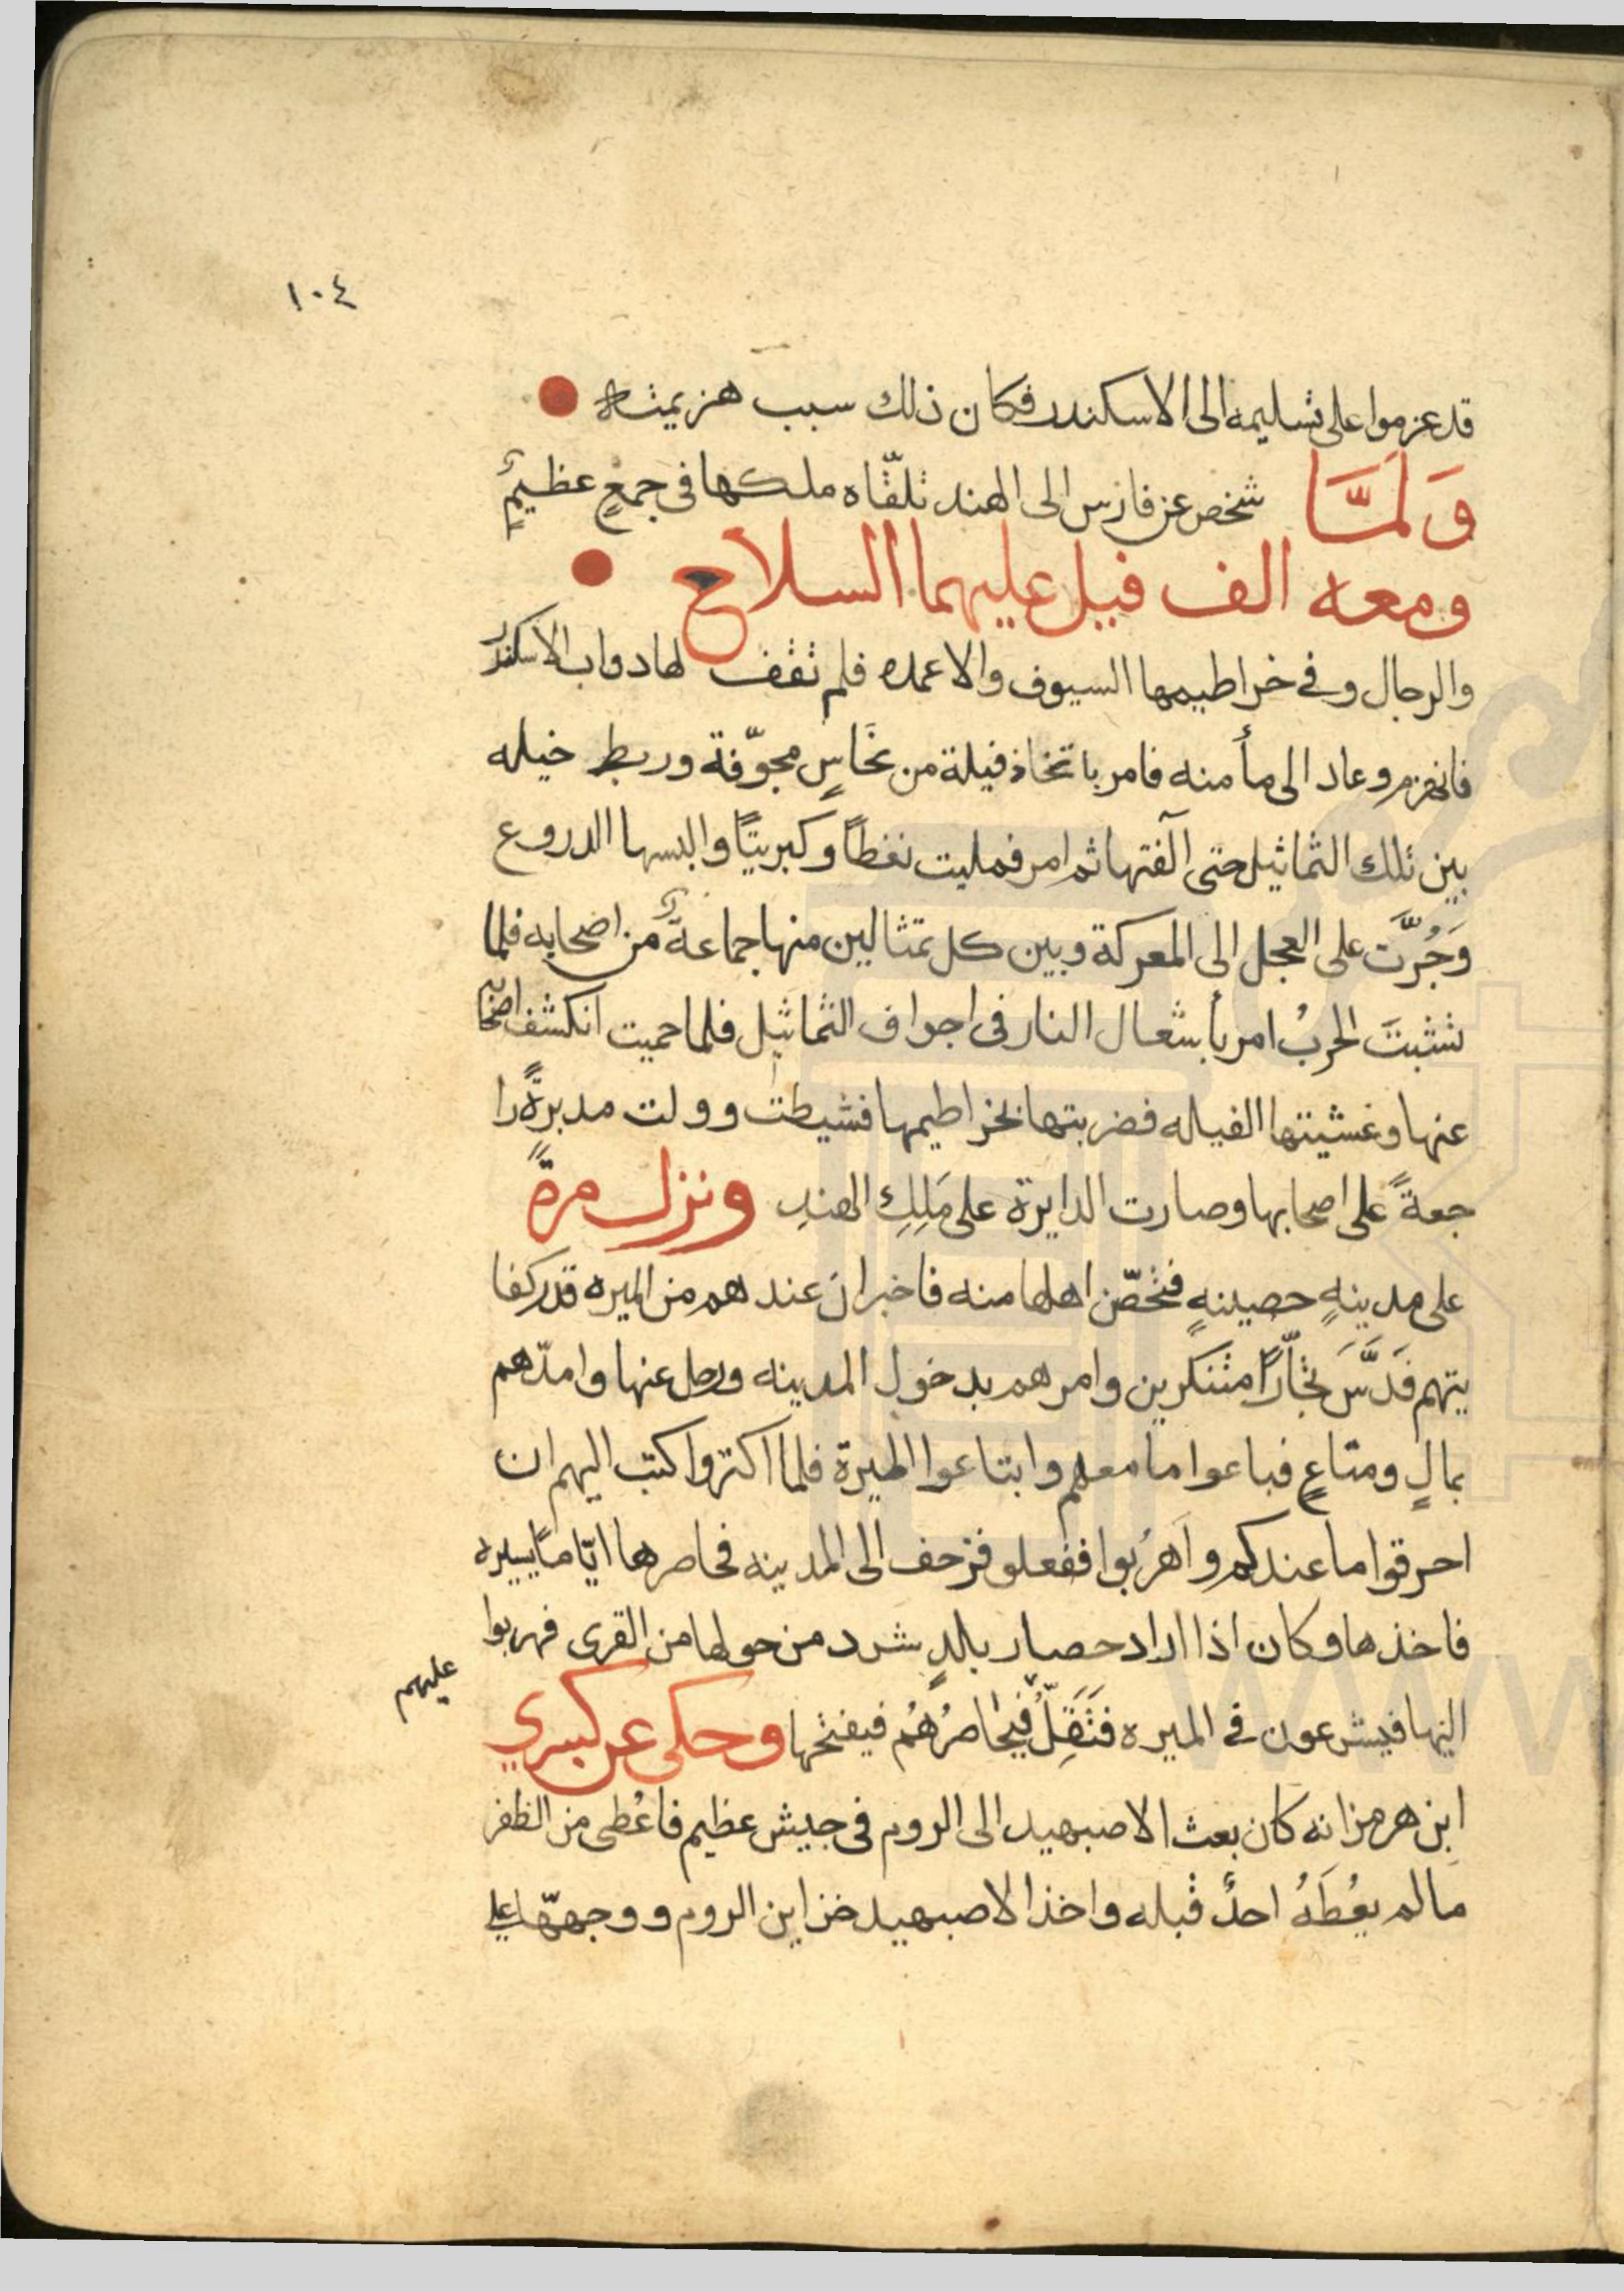 ١٠٤
قد عزموا على تسليمه الى الاسكندر فكان ذلك سبب هزيمته
وَلَمَّا شخص عن فارس الى الهند تلقّاه ملكها في جمعٍ عظيمٍ
ومعه الف فيل عليهما السلاح
والرجال وفي خراطيمها السيوف والاعمده فلم تقف لها دواب الاسكندر
فانهزم وعاد الى مأمنه فامر باتخاذ فيلة من نحَاسٍ مجوّفة وربط خيله
بين تلك التماثيل حتى آلفتها ثم امر فمليت نفطاً وكبريتًا والبسها الدروع
وَجُرَّت على العجل الى المعركة وبين كل تمثالين منها جماعةٌ من اصحابه فلما
نشبتَ الحربُ امر بأشعال النار في اجواف التماثيل فلما حميت انكشف اصحابه
عنها وغشيتها الفيله فضربتها بخراطيمها فشيطت وولت مدبرةً را
جعةً على اصحابها وصارت الدايرة على مَلِكِ الهندِ ونزل مرةً
على مدينهٍ حصينهٍ فتحصّن اهلها منه فاخبر ان عندهم من الميره قدر كفا
يتهم فَدَسَّ تجّارًا متنكرين وامرهم بدخول المدينه ورحل عنها وامدّهم
بمالٍ ومتاعٍ فباعوا ما معهم وابتاعوا الميرة فلما اكثروا كتب اليهم ان
احرقوا ما عندكم واهرُبوا ففعلو فزحف الى المدينه فحاصرها ايّامًا يسيره
فاخذها وكان اذا اراد حصار بلدٍ شرد من حولها من القرى فهربوا
عليهم
اليها فيشرعون في الميره فَتَقِلُّ فيُحاصرُهُم فيفتحها وحكى عن كسرى
ابن هرمز انه كان بعث الاصبهيد الى الروم في جيش عظيم فاعُطى من الظفر
ما لم يعُطَهُ احدٌ قبله واخذ الاصبهيد خزاين الروم ووجهّها على